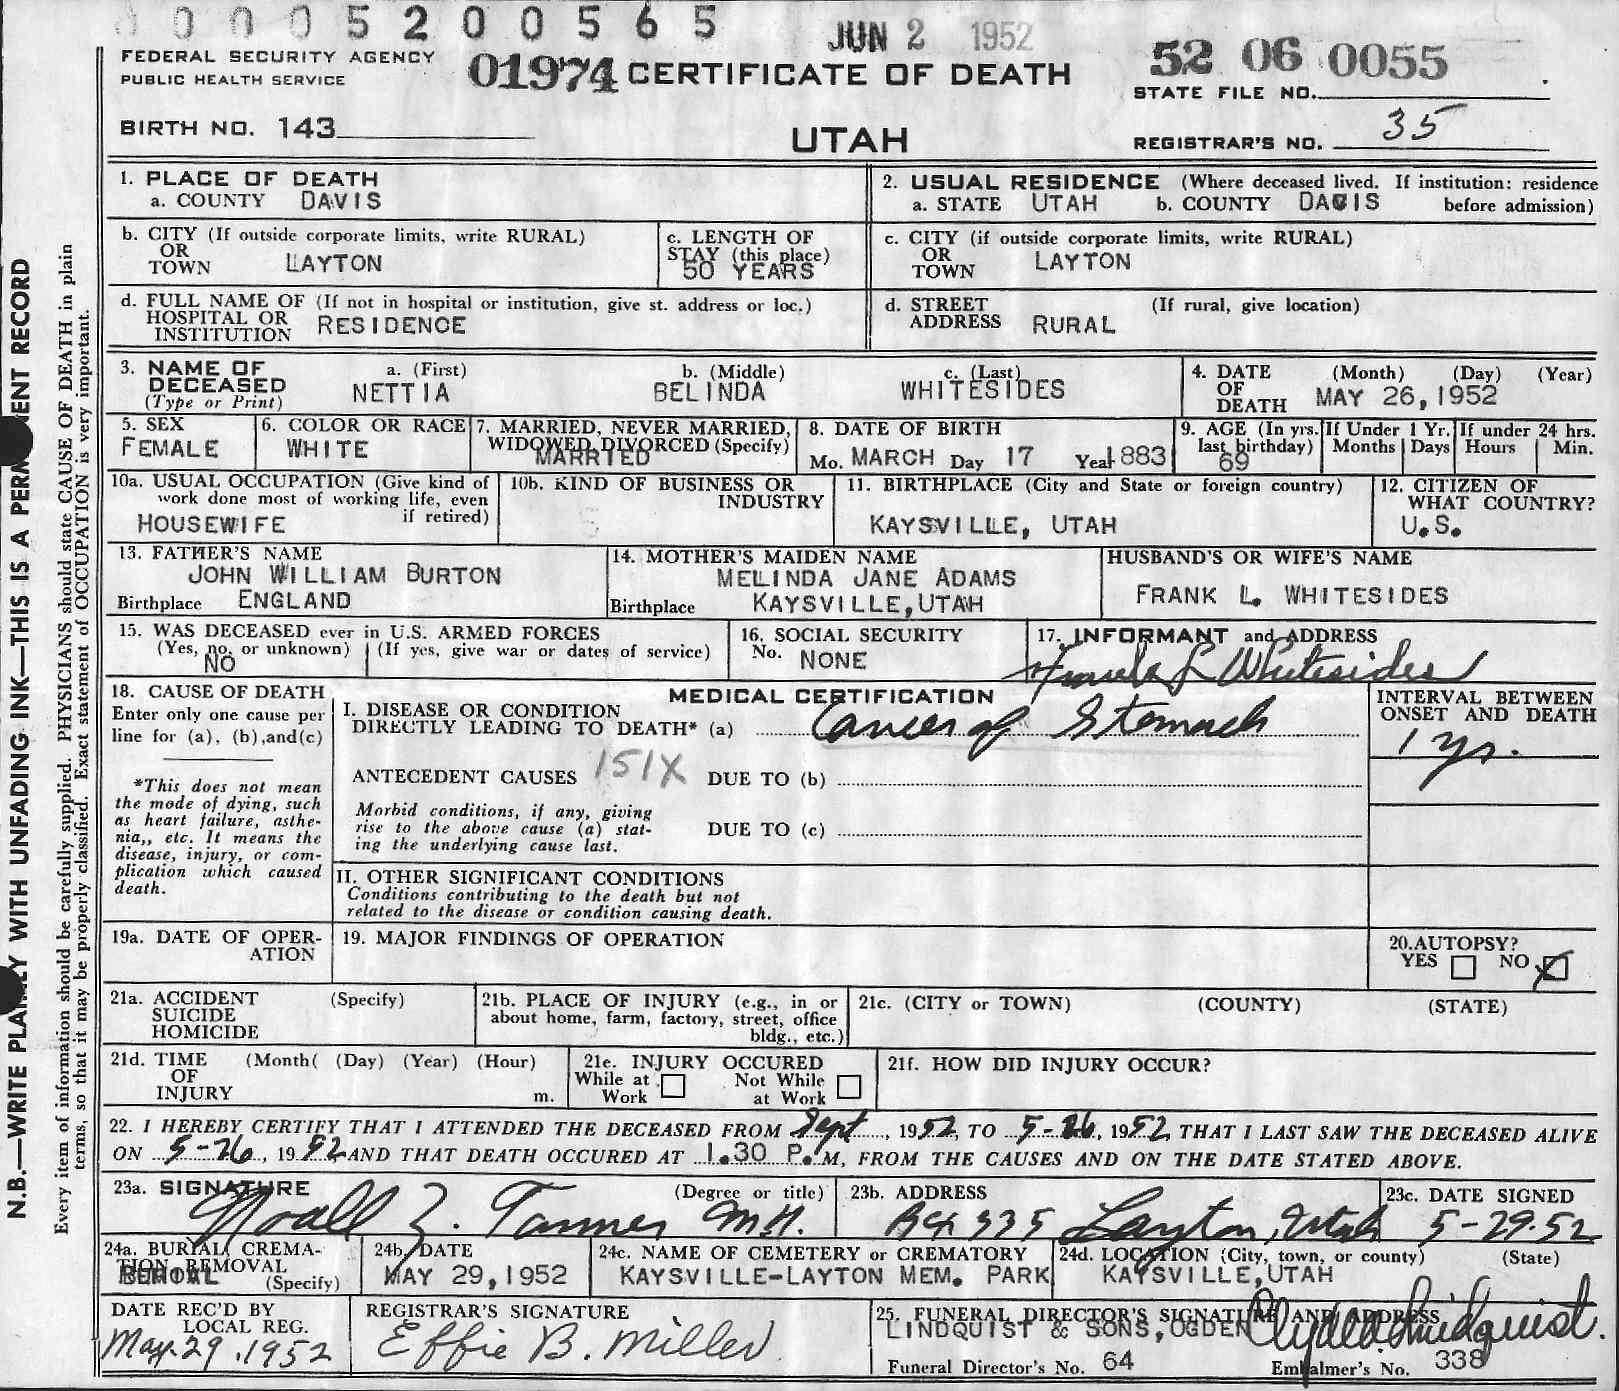 0 0 0 0 5 2 0 0 5 6 5
JUN 2 1952
FEDERAL SECURITY AGENCY
PUBLIC HEALTH SERVICE
01974 CERTIFICATE OF DEATH
52 06 0055
STATE FILE NO.
BIRTH NO. 143
UTAH
REGISTRAR'S NO. 35
N.B.—WRITE PLAINLY WITH UNFADING INK—THIS IS A PERMANENT RECORD
Every item of information should be carefully supplied. PHYSICIANS should state CAUSE OF DEATH in plain
terms, so that it may be properly classified. Exact statement of OCCUPATION is very important.
1. PLACE OF DEATH
a. COUNTY DAVIS
2. USUAL RESIDENCE (Where deceased lived. If institution: residence
a. STATE UTAH b. COUNTY DAVIS before admission)
b. CITY (If outside corporate limits, write RURAL)
OR
TOWN LAYTON
c. LENGTH OF
STAY (this place)
50 YEARS
c. CITY (if outside corporate limits, write RURAL)
OR
TOWN LAYTON
d. FULL NAME OF (If not in hospital or institution, give st. address or loc.)
HOSPITAL OR
INSTITUTION RESIDENCE
d. STREET (If rural, give location)
ADDRESS RURAL
3. NAME OF
DECEASED
(Type or Print)
a. (First)
NETTIA
b. (Middle)
BELINDA
c. (Last)
WHITESIDES
4. DATE (Month) (Day) (Year)
OF
DEATH MAY 26,1952
5. SEX
FEMALE
6. COLOR OR RACE
WHITE
7. MARRIED, NEVER MARRIED,
WIDOWED DIVORCED (Specify)
MARRIED
8. DATE OF BIRTH
Mo. MARCH Day 17 Year 1883
9. AGE (In yrs.
last birthday)
69
If Under 1 Yr.
Months Days
If under 24 hrs.
Hours Min.
10a. USUAL OCCUPATION (Give kind of
work done most of working life, even
if retired)
HOUSEWIFE
10b. KIND OF BUSINESS OR
INDUSTRY
11. BIRTHPLACE (City and State or foreign country)
KAYSVILLE, UTAH
12. CITIZEN OF
WHAT COUNTRY?
U.S.
13. FATHER'S NAME
JOHN WILLIAM BURTON
Birthplace ENGLAND
14. MOTHER'S MAIDEN NAME
MELINDA JANE ADAMS
Birthplace KAYSVILLE,UTAH
HUSBAND'S OR WIFE'S NAME
FRANK L. WHITESIDES
15. WAS DECEASED ever in U.S. ARMED FORCES
(Yes, no, or unknown) (If yes, give war or dates of service)
NO
16. SOCIAL SECURITY
No. NONE
17. INFORMANT and ADDRESS
L Whitesides
18. CAUSE OF DEATH
Enter only one cause per
line for (a), (b),and(c)
*This does not mean
the mode of dying, such
as heart failure, asthe-
nia,, etc. It means the
disease, injury, or com-
plication which caused
death.
MEDICAL CERTIFICATION
I. DISEASE OR CONDITION
DIRECTLY LEADING TO DEATH* (a) Cancer of Stomach
ANTECEDENT CAUSES 151X DUE TO (b)
Morbid conditions, if any, giving
rise to the above cause (a) stat-
ing the underlying cause last.
DUE TO (c)
II. OTHER SIGNIFICANT CONDITIONS
Conditions contributing to the death but not
related to the disease or condition causing death.
INTERVAL BETWEEN
ONSET AND DEATH
1 yr.
19a. DATE OF OPER-
ATION
19. MAJOR FINDINGS OF OPERATION
20.AUTOPSY?
YES NO
21a. ACCIDENT (Specify)
SUICIDE
HOMICIDE
21b. PLACE OF INJURY (e.g., in or
about home, farm, factory, street, office
bldg., etc.)
21c. (CITY or TOWN) (COUNTY) (STATE)
21d. TIME (Month( (Day) (Year) (Hour)
OF
INJURY m.
21e. INJURY OCCURED
While at Work Not While at Work
21f. HOW DID INJURY OCCUR?
22. I HEREBY CERTIFY THAT I ATTENDED THE DECEASED FROM Sept, 1952, TO 5-26, 1952 THAT I LAST SAW THE DECEASED ALIVE
ON 5-26, 1952 AND THAT DEATH OCCURED AT 1.30 P.M, FROM THE CAUSES AND ON THE DATE STATED ABOVE.
23a. SIGNATURE (Degree or title)
Noall Z. Tanner M.D.
23b. ADDRESS
Box 335 Layton, Utah
23c. DATE SIGNED
5-29-52
24a. BURIAL, CREMA-
TION, REMOVAL
(Specify)
24b. DATE
MAY 29,1952
24c. NAME OF CEMETERY or CREMATORY
KAYSVILLE-LAYTON MEM. PARK
24d. LOCATION (City, town, or county) (State)
KAYSVILLE,UTAH
DATE REC'D BY
LOCAL REG.
May 29, 1952
REGISTRAR'S SIGNATURE
Effie B. Miller
25. FUNERAL DIRECTOR'S SIGNATURE AND ADDRESS
LINDQUIST & SONS,OGDEN Clyde D. Lindquist.
Funeral Director's No. 64 Embalmer's No. 338